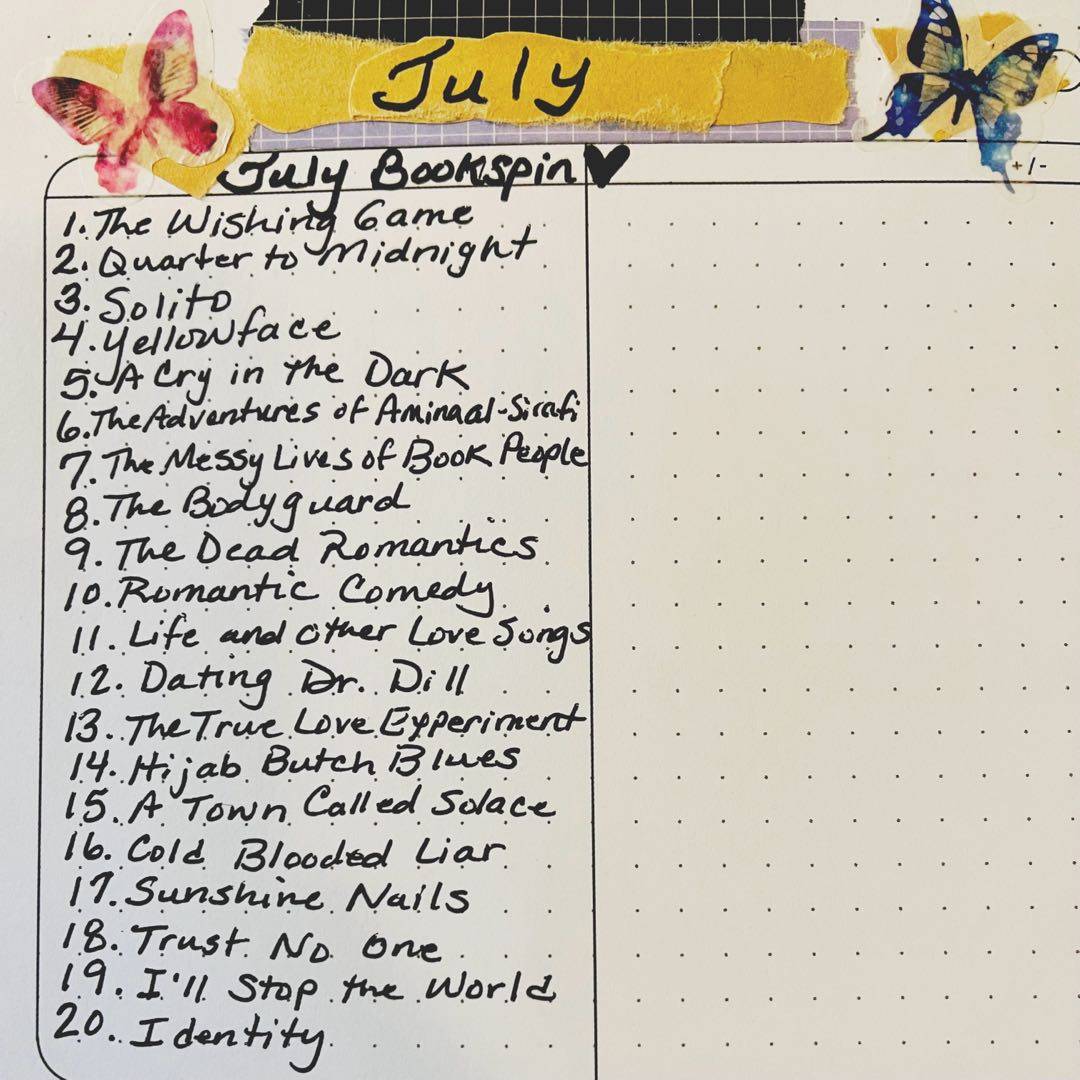 July
July Bookspin ♥
+/-
1. The Wishing Game
2. Quarter to Midnight
3. Solito
4. Yellowface
5. A Cry in the Dark
6. The Adventures of Amina al-Sirafi
7. The Messy Lives of Book People
8. The Bodyguard
9. The Dead Romantics
10. Romantic Comedy
11. Life and Other Love Songs
12. Dating Dr. Dill
13. The True Love Experiment
14. Hijab Butch Blues
15. A Town Called Solace
16. Cold Blooded Liar
17. Sunshine Nails
18. Trust No One
19. I'll Stop the World
20. Identity